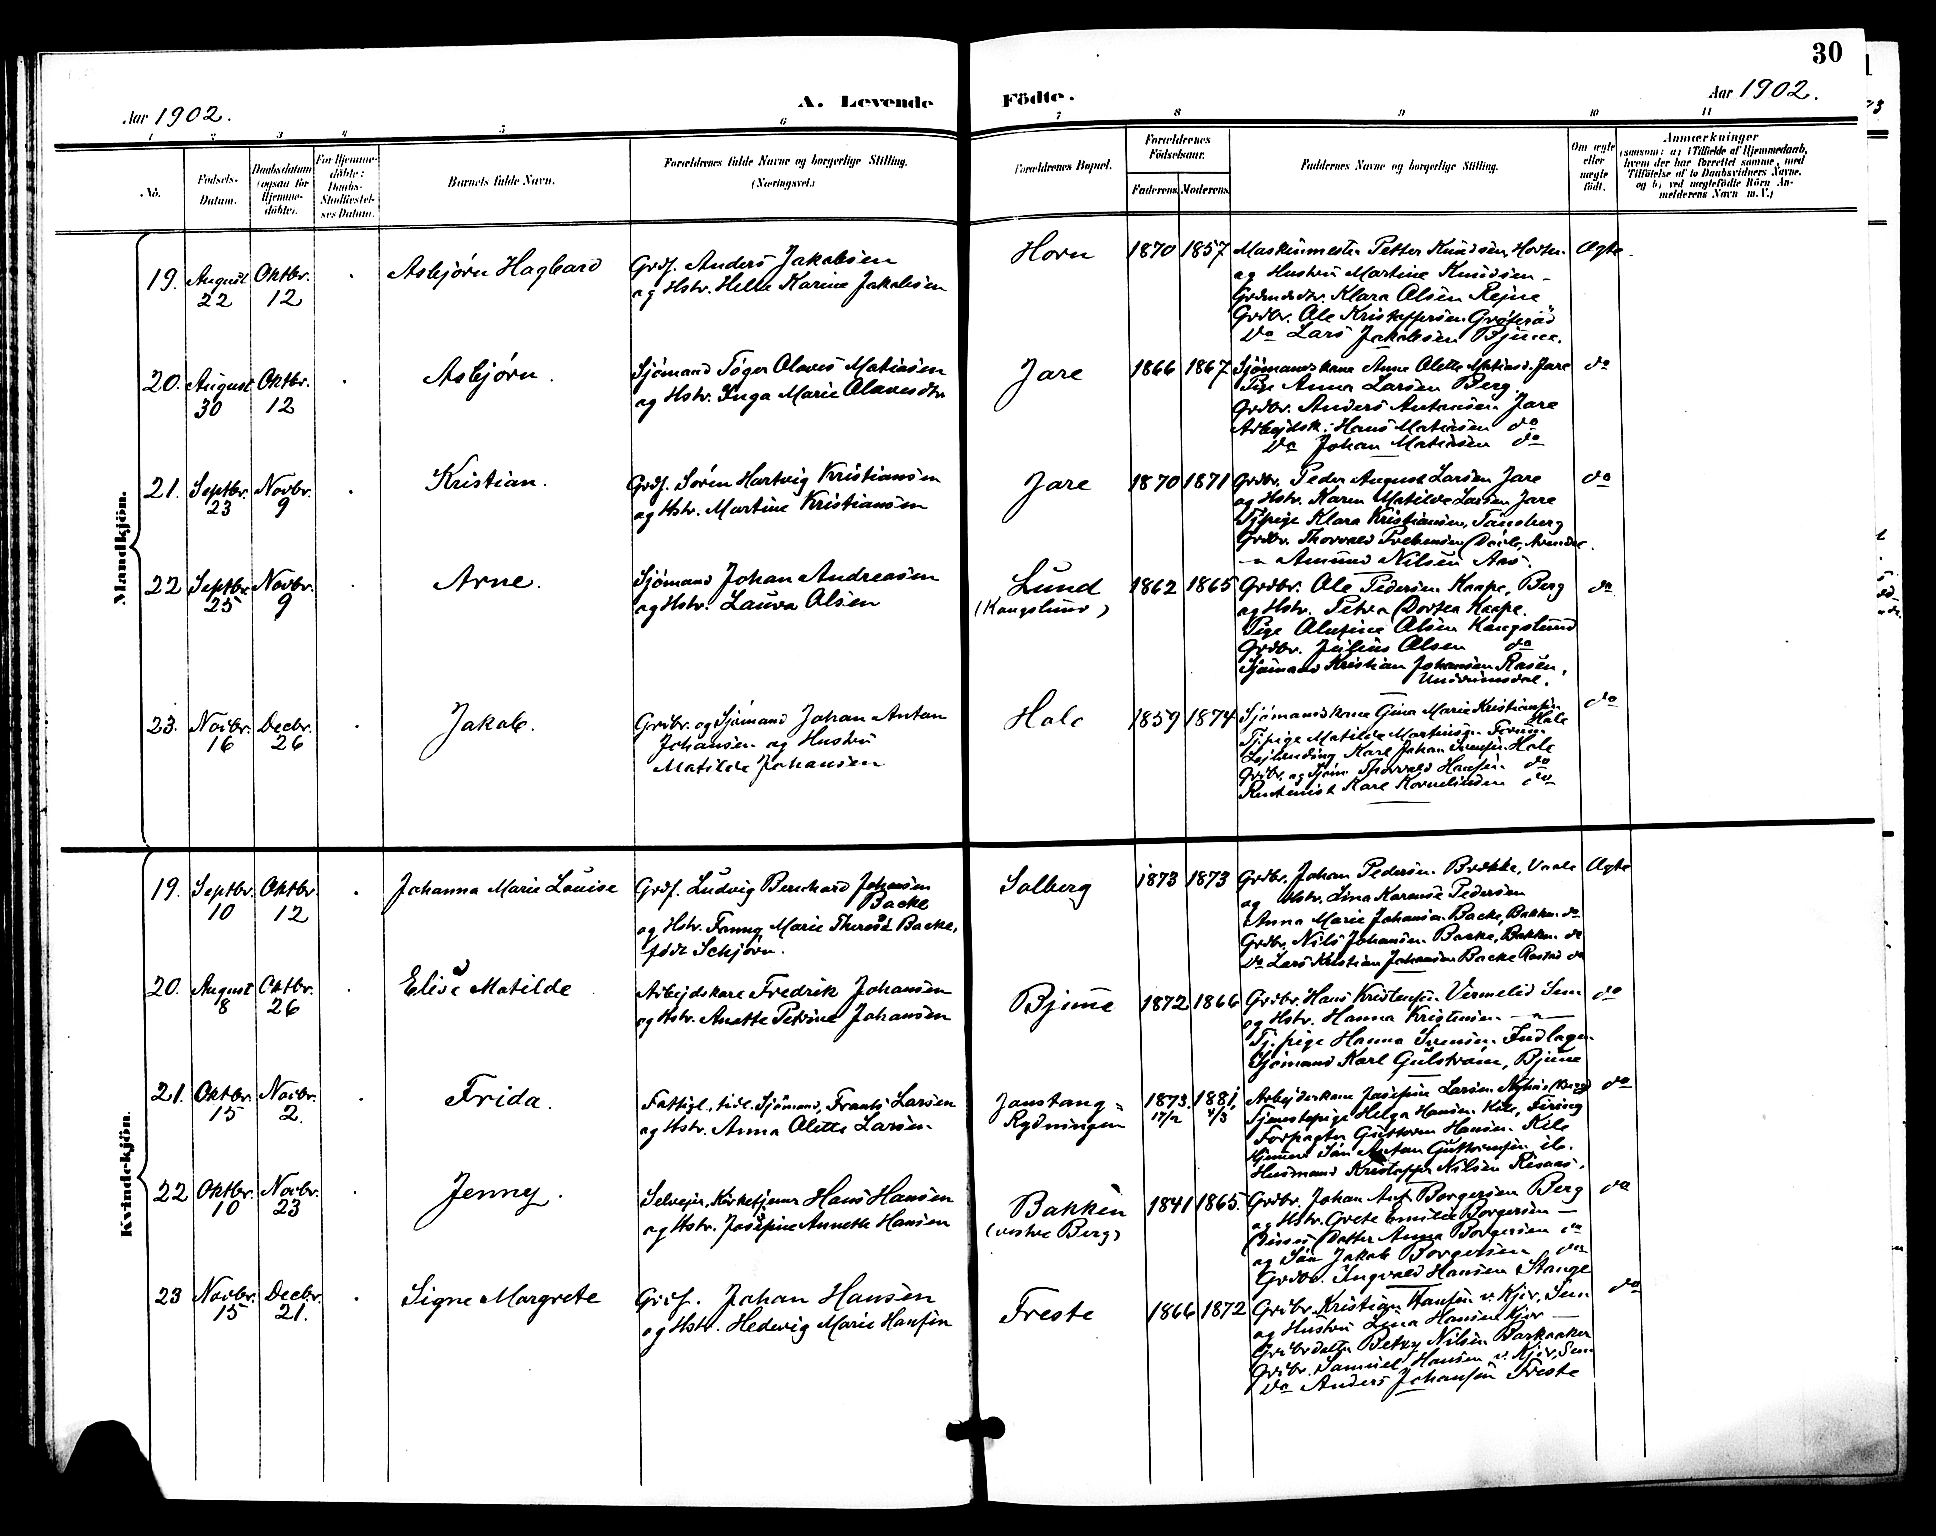 30
Aar 1902.
A. Levende Födte.
Aar 1902.
1 2 3 4 5 6 7 8 9 10 11
No.
Födsels-Datum.
Daabsdatum (ogsaa for Hjemmedöbte).
For Hjemmedöbte: Daabs-Stadfæstelses Datum.
Barnets fulde Navn.
Forældrenes fulde Navne og borgerlige Stilling. (Næringsvei.)
Forældrenes Bopæl.
Forældrenes Födselsaar.
Faderens. Moderens.
Faddernes Navne og borgerlige Stilling.
Om ægte eller uægte födt.
Anmærkninger
(saasom: a) i Tilfælde af Hjemmedaab,
hvem der har forrettet samme, med
Tilföielse af to Daabsvidners Navne,
og b) ved uægtefödte Börn An-
melderens Navn m. V.)
Mandkjön.
19. August 22 Oktbr. 12 Asbjørn Hagbard
Grdf. Anders Jakobsen
og Hstr. Helene Karine Jakobsen
Horn 1870 1857
Maskinmester Petter Knudsen, Horten
og Hustru Martine Knudsen
Klara Olsen Rejne
Grdbr. Ole Kristoffersen
Do Lars Jakobsen Bjune.
Ægte
20. August 30 Oktbr. 12 Asbjørn.
Sjømand Tøger Olaves Matiasen
og Hstr. Inga Marie Olavesdtr.
Jare 1866 1867
Sjømandskone Anne Olette Jare
Pige Anna Larsen Berg
Grdbr. Anders Antonsen Jare
Arbejdsk. Hans Matiasen do
Do Johan Matiasen do
do
21. Septbr. 23 Novbr. 9 Kristian.
Grdf. Søren Hartvig Kristiansen
og Hstr. Martine Kristiansen
Jare 1870 1871
Grdbr. Peder August Larsen Jare
og Hstr. Karen Matilde Larsen Jare
Tjpige Klara Kristiansen, Tønsberg
Grdbr. Thorvald
Amund Nilsen Aas.
do
22 Septbr. 25 Novbr. 9 Arne.
Sjømand Johan Andreasen
og Hstr. Laura Olsen
Lund
(Kongslund)
1862 1865
Grdbr. Ole Pedersen Kaape, Berg
og Hstr. Petra Dortea Kaape.
Pige Olufine Olsen Kongslund
Grdbr. Julius Olsen do
Sjømand Kristian Johansen Rosen,
Undrumsdal.
do
23. Novbr. 16 Decbr. 26 Jakob.
Grdbr. og Sjømand Johan Anton
Johansen og Hustru
Matilde Johansen
Hole 1859 1874
Sjømandskone Gina Marie Kristiansen
Hole
Tjpige Matilde Martinsen
Karl Johan Hole
Grdbr. og Sjøm. Thorvald Hansen do
Karl Kornelius do
do
Kvindekjön.
19. Septbr. 10 Oktbr. 12 Johanna Marie Louise
Grdf. Ludvig Bernhard Johansen
Backe
og Hstr. Fanny Marie Therese Backe,
født Schjørn.
Solberg 1873 1873
Grdbr. Johan Pedersen Brække, Vaale
og Hstr. Lina Karense Pedersen
Anna Marie Johansen Backe, Bakken do
Grdbr. Nils Johansen Backe, Bakken do
Do Lars Kristian Johansen Backe do
Ægte
20. August 8 Oktbr. 26 Elise Matilde
Arbejdskare Fredrik Johansen
og Hstr. Anette Petrine Johansen
Bjune 1872 1866
Grdbr. Hans Kristensen Vermelid Sem
og Hstr. Hanna Kristensen
Tj. pige Hanna Svensen
Sjømand Karl Gulstrøm, Bjune
do
21. Oktbr. 15 Novbr. 2. Frida.
Fattigl., tidl. Sjømand, Frants Larsen
og Hstr. Anna Olette Larsen
Jonstang-
Rydningen
1873. 17/12 1881, 4/3
Arbejderkone Josefine Larsen (Berg)
Tjenestepige Helga Hansen Kile,
Forpagter Guttorm Hansen Kile
Søn Anton Guttormsen
Husmand Kristoffer Nilsen
do
22 Oktbr. 10 Novbr. 23 Jenny.
Selvejer, Kirketjener Hans Hansen
og Hstr. Josefine Annette Hansen
Bakken
(vestre Berg)
1841 1865.
Grdbr. Johan Ant. Borgersen Berg
og Hstr. Grete Emilie Borgersen
Disses Datter Anna Borgersen do
og Søn Jakob Borgersen do
Grdbr. Ingvald Hansen Stange
do
23 Novbr. 15 Decbr. 21. Signe Margrete
Grdf. Johan Hansen
og Hstr. Hedevig Marie Hansen
Freste 1866 1872
Grdbr. Kristian Hansen v. Kjær, Sem
og Hustru Lina Hansen Kjær
Grdbrdatter Betzy Nilsen Barkaaker
Grdbr. Samuel Hansen v. Kjær, Sem
Do Anders Johansen Freste
do